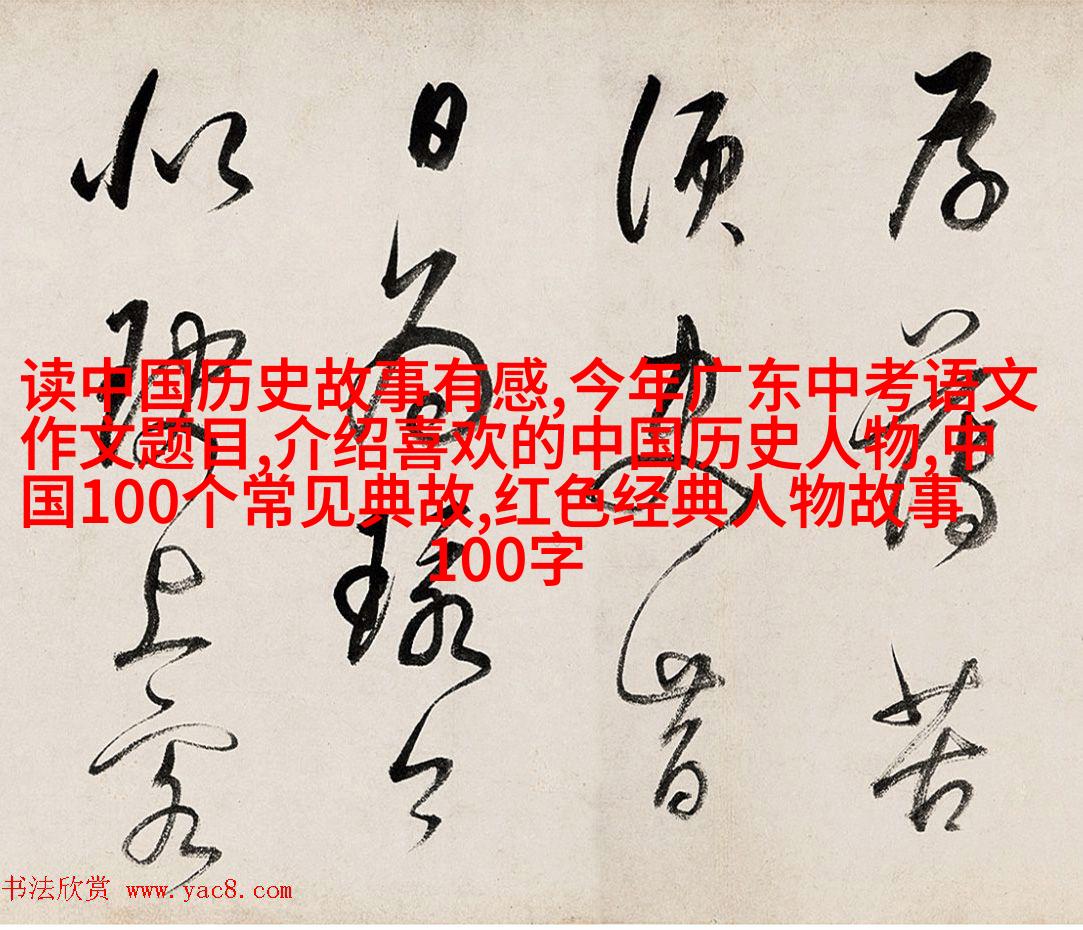 读中国历史故事有感,今年广东中考语文
作文题目,介绍喜欢的中国历史人物,中
国100个常见典故,红色经典人物故事
100字
苦
须昔
日
似上客
书法欣赏 www.yac8.com